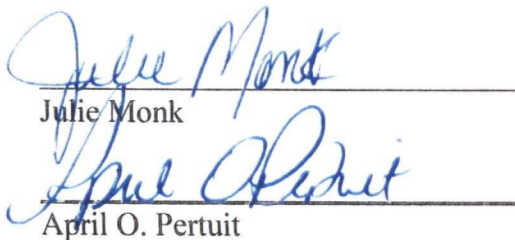 Julie Monk
Julie Monk
April O Pertuit
April O. Pertuit